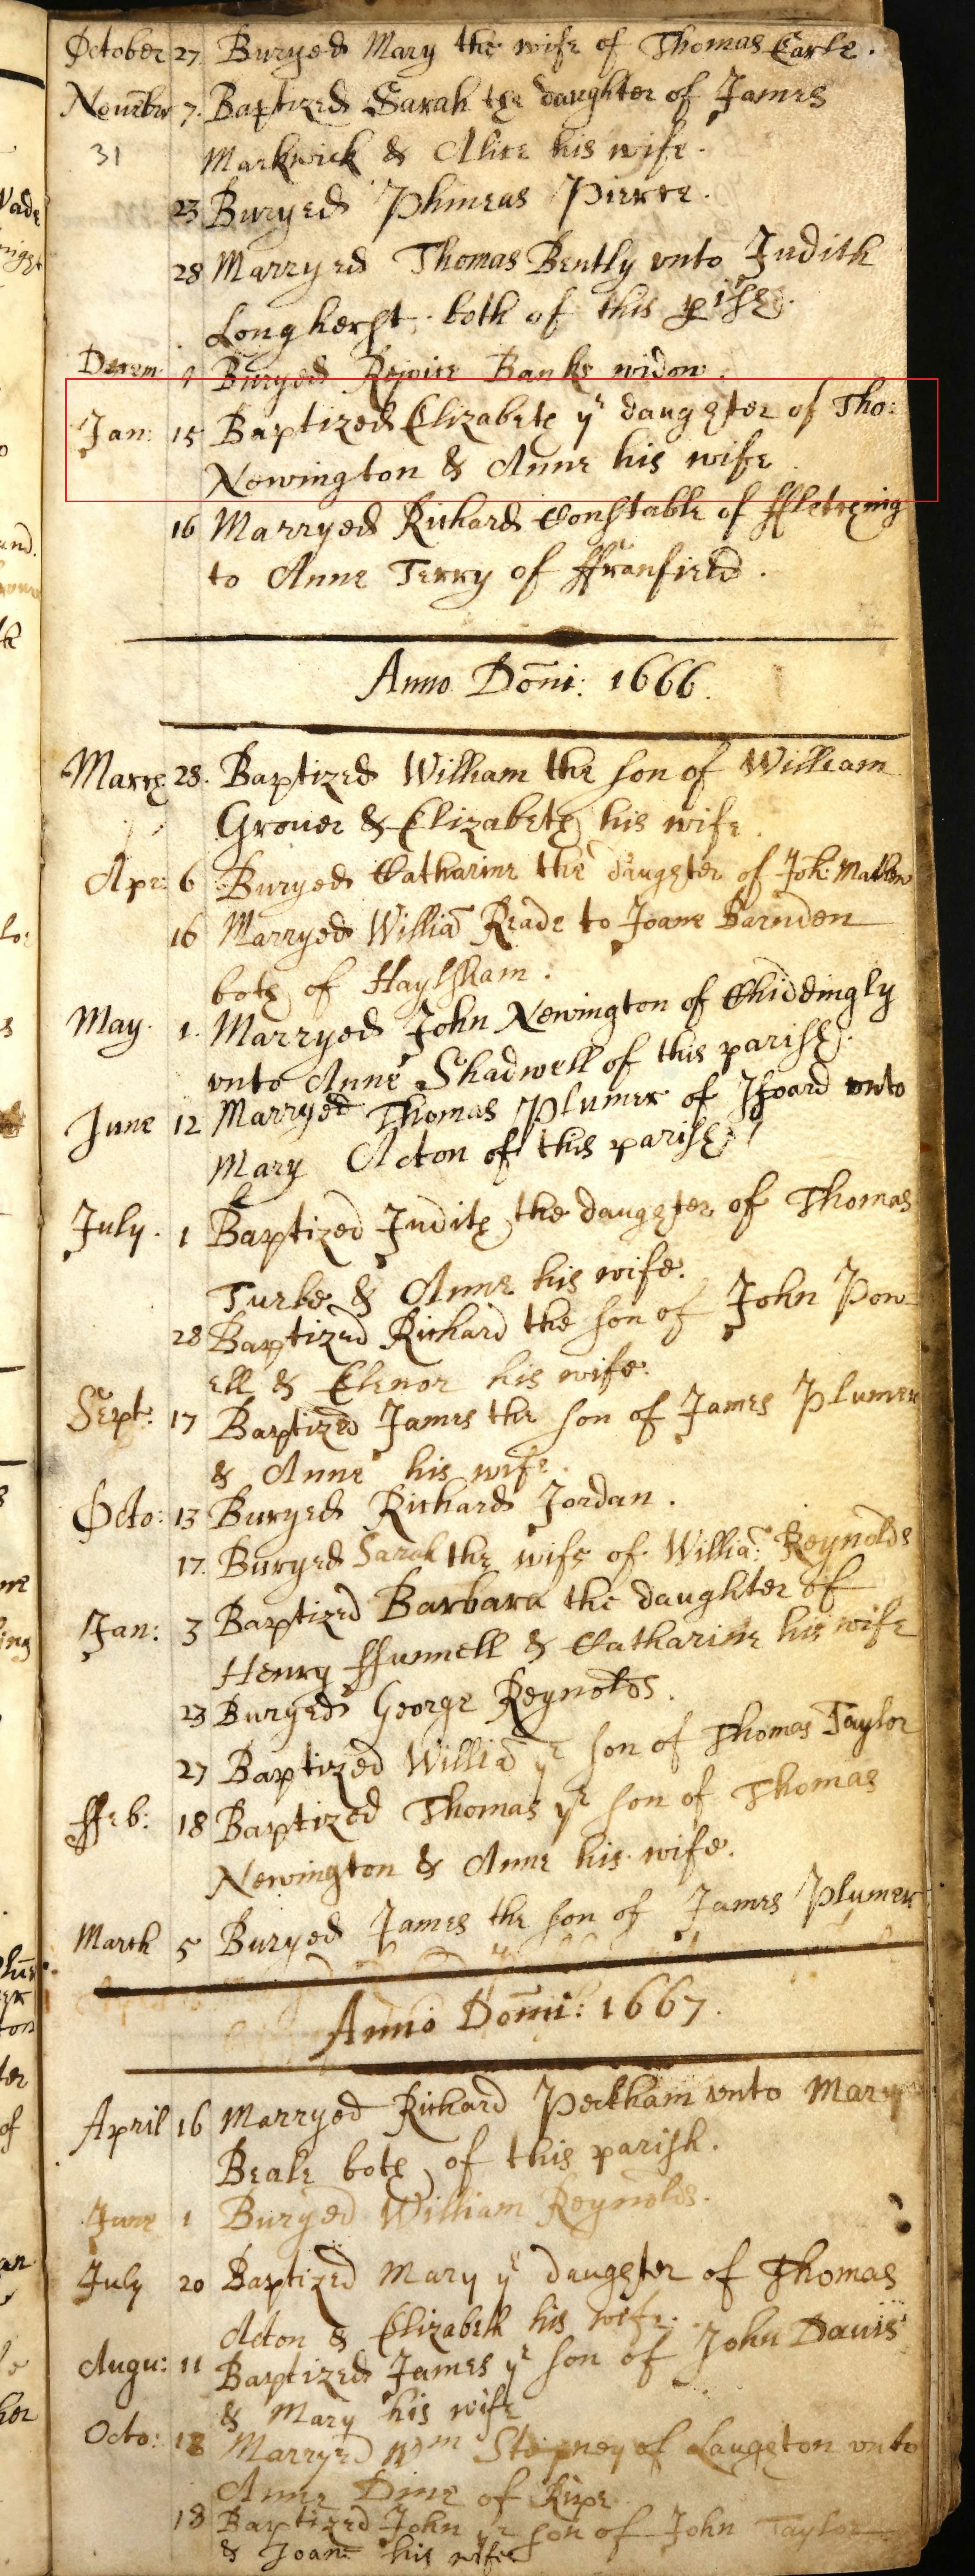 October 27 Buryed Mary the wife of Thomas Earle.
Nouēber 7. Baptized Sarah the daughter of James
31 Markwick & Alice his wife.
23 Buryed Phineas Pierce.
28 Marryed Thomas Bently vnto Judith
Longherst. both of this pish.
Decem 1 Buryed Rejoice Banks widow.
Jan: 15 Baptized Elizabeth ye daughter of Tho:
Newington & Anne his wife
16 Marryed Richard Constable of ffletching
to Anne Terry of ffranfield.
Anno Dōni: 1666.
March 28. Baptized William the son of William
Grouer & Elizabeth his wife.
Apr: 6 Buryed Catharine the daughter of Joh:
16 Marryed Williā Reade to Joane Barnden
both of Haylsham.
May. 1. Marryed John Newington of Chiddingly
vnto Anne Shadwell of this parish.
June 12 Marryed Thomas Plumer of Ifoard vnto
Mary Acton of this parish
July. 1 Baptized Judith the daughter of Thomas
Turke & Anne his wife.
28 Baptized Richard the son of John Pow
ell & Elenor his wife.
Sept: 17 Baptized James the son of James Plumer
& Anne his wife.
Octo: 13 Buryed Richard Jordan.
17. Buryed Sarah the wife of Williā: Reynolds
Jan: 3 Baptized Barbara the daughter of
Henry ffunnell & Catharine his wife
23 Buryed George Reynolds.
27 Baptized Williā ye son of Thomas Taylor
ffeb: 18 Baptized Thomas ye son of Thomas
Newington & Anne his wife.
March 5 Buryed James the son of James Plumer
Anno Dōmi: 1667.
April 16 Marryed Richard Peckham vnto Mary
Beale both of this parish.
June 1 Buryed William Reynolds.
July 20 Baptized Mary ye daughter of Thomas
Acton & Elizabeth his wife.
Augu: 11 Baptized James ye son of John Dauis
& Mary his wife
Octo: 12 Marryed Wm Stepney of Laughton vnto
Anne Dine of Ripe
18 Baptized John ye son of John Taylor
& Joane his wife